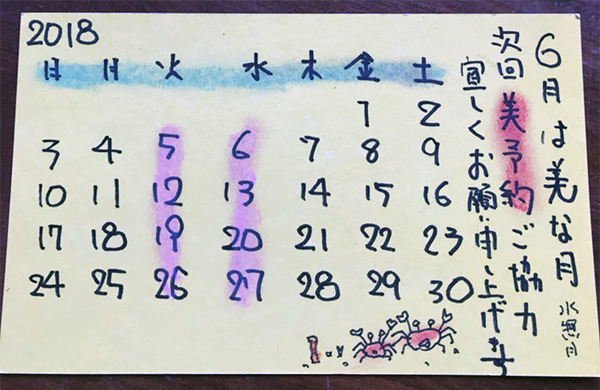 2018
日 月 火 水 木 金 土
1 2
3 4 5 6 7 8 9
10 11 12 13 14 15 16
17 18 19 20 21 22 23
24 25 26 27 28 29 30
6月は美な月
水無月
次回美予約ご協力
宜しくお願い申し上げます